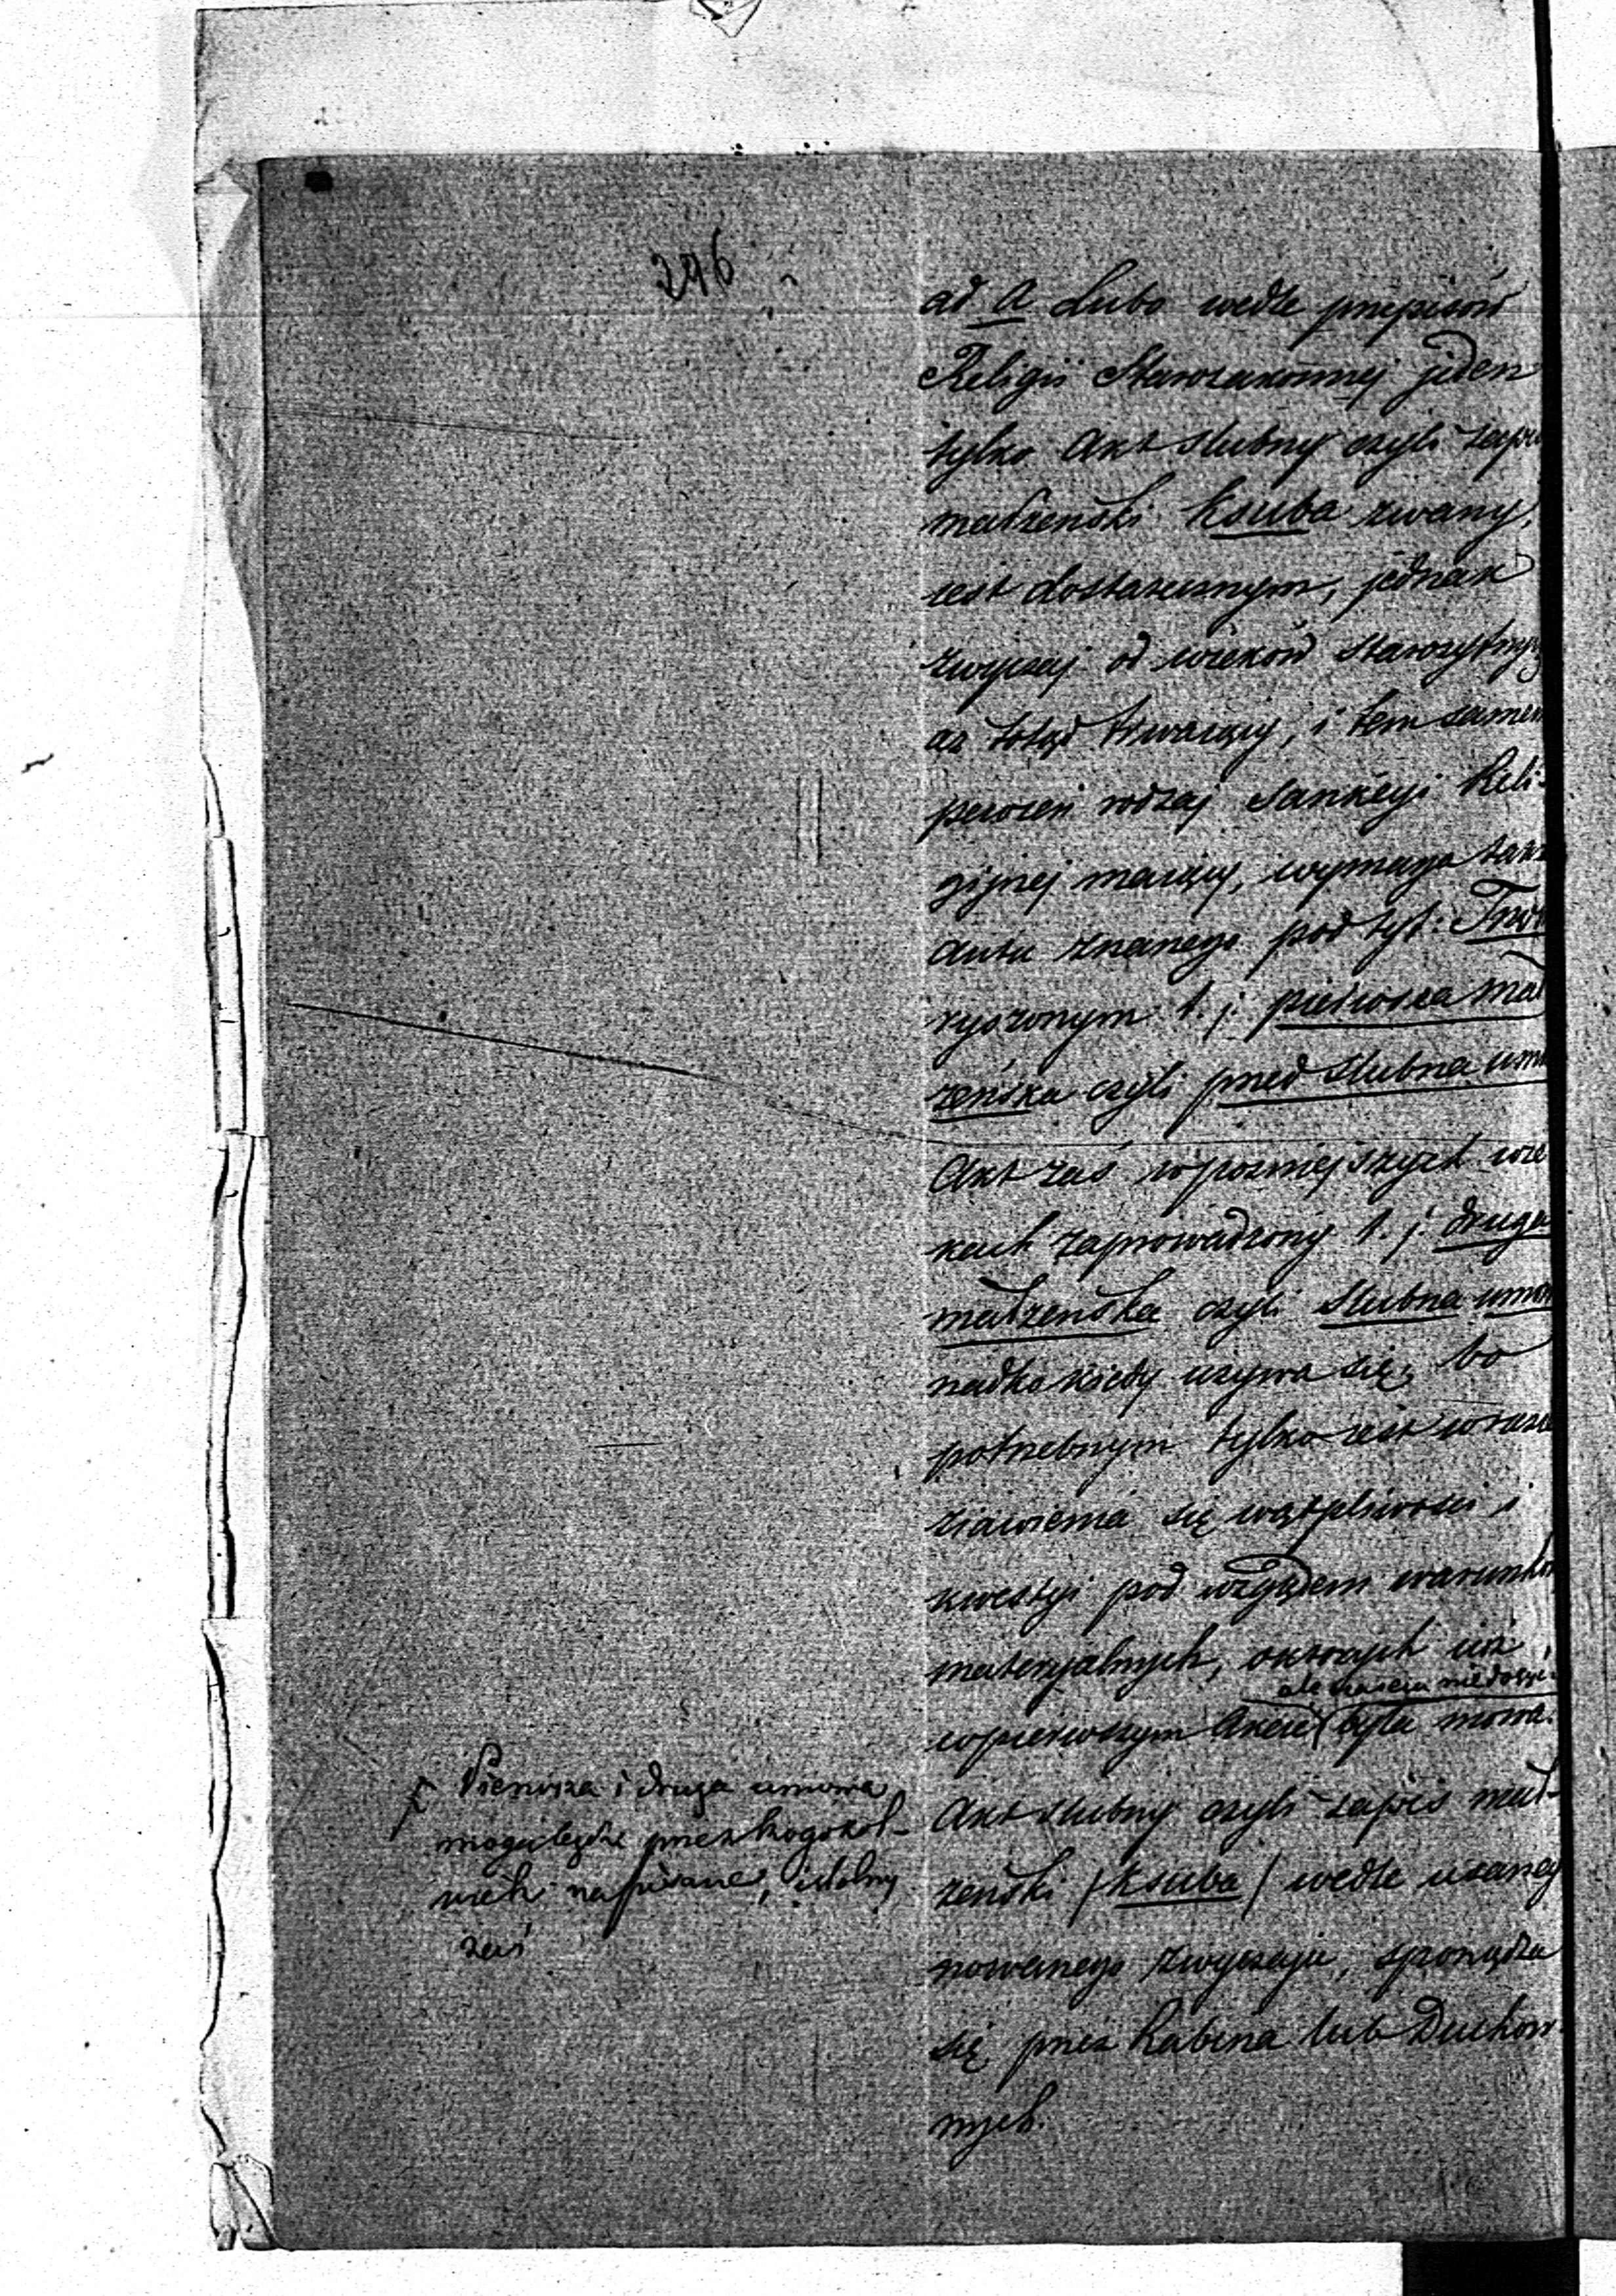 246
ad a Lubo wedle przepisów
Religii Starozakonnej jeden
tylko Akt ślubny czyli zapis
małżeński Ksuba zwany,
jest dostatecznym, jednak
zwyczaj od wieków starożytnych
aż totąd trwaiący, i tem samem
pewien rodzaj Sankcyi Reli-
gijnej maiący, wymaga także
Aktu znanego pod tyt:
t. j. pierwsza mał
żeńska czyli przedślubna umo
Akt zaś w pozniejszych wie
kach zaprowadzony t. j. druga
małżeńska czyli ślubna umo
rzadko kiedy używa się, bo
potrzebnym tylko jest w razie
ziawienia się wątpliwości i
kwestyi pod względem warunków
materyalnych, o których już
ale
w pierwszym Akcie była mowa.
Akt ślubny czyli zapis mał-
żeński (Ksuba) wedle usza-
nowanego zwyczaju, sporządza
się przez Rabina lub Duchow-
nych.
Pierwsza i druga umowa
mogą być przez kogokol-
wiek napisane,
zaś